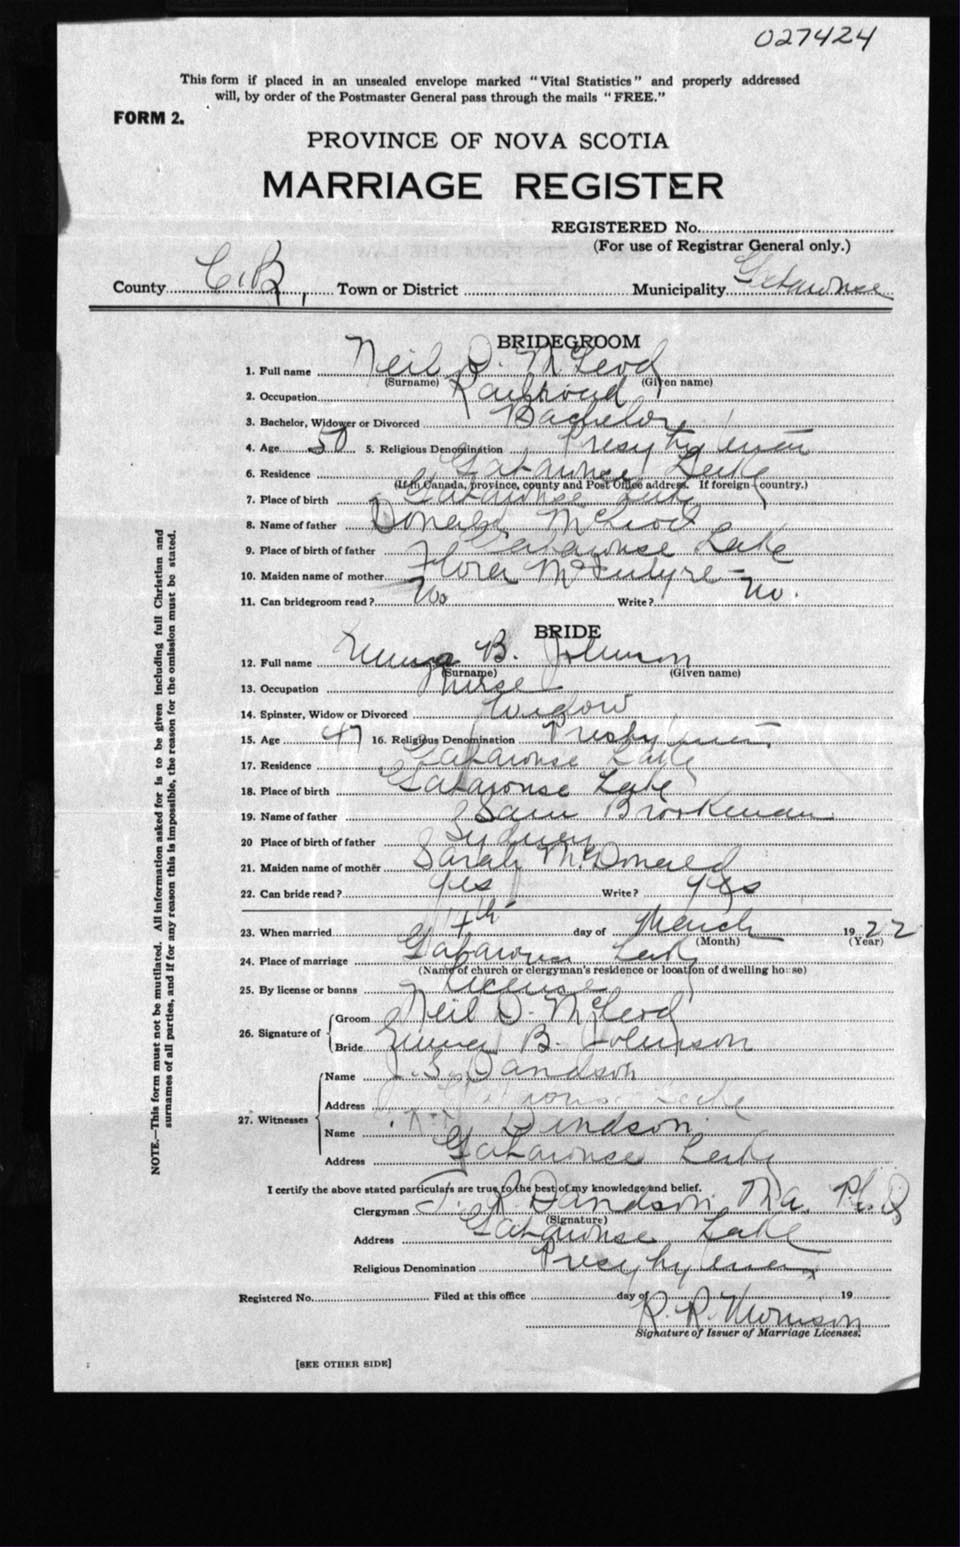 027424
This form if placed in an unsealed envelope marked "Vital Statistics" and properly addressed
will, by order of the Postmaster General pass through the mails "FREE."
FORM 2.
PROVINCE OF NOVA SCOTIA
MARRIAGE REGISTER
REGISTERED No.
(For use of Registrar General only.)
County C.B. Town or District Municipality Gabarouse
BRIDEGROOM
1. Full name Neil D. McLeod
(Surname) (Given name)
2. Occupation Railroad
3. Bachelor, Widower or Divorced Bachelor
4. Age 50 5. Religious Denomination Presbyterian
6. Residence Gabarouse Lake
(If in Canada, province, county and Post Office address. If foreign country.)
7. Place of birth Gabarouse Lake
8. Name of father Donald McLeod
9. Place of birth of father Gabarouse Lake
10. Maiden name of mother Flora McIntyre
11. Can bridegroom read? No Write? No.
BRIDE
12. Full name Emma B. Johnson
(Surname) (Given name)
13. Occupation Nurse
14. Spinster, Widow or Divorced Widow
15. Age 47 16. Religious Denomination Presbyterian
17. Residence Gabarouse Lake
18. Place of birth Gabarouse Lake
19. Name of father Sam Brookman
20 Place of birth of father Sydney
21. Maiden name of mother Sarah McDonald
22. Can bride read? yes Write? yes
23. When married day of March 1922
(Month) (Year)
24. Place of marriage Gabarouse Lake
(Name of church or clergyman's residence or location of dwelling house)
25. By license or banns License
26. Signature of Groom Neil D. McLeod
Bride Emma B. Johnson
27. Witnesses Name J. S. Davidson
Address Gabarouse Lake
Name Davidson
Address Gabarouse Lake
I certify the above stated particulars are true to the best of my knowledge and belief.
Clergyman Davidson, M.A. Ph.D
(Signature)
Address Gabarouse Lake
Religious Denomination Presbyterian
Registered No. Filed at this office day of 19
R. R. Morrison
Signature of Issuer of Marriage Licenses.
[SEE OTHER SIDE]
NOTE.—This form must not be mutilated. All information asked for is to be given including full Christian and
surnames of all parties, and if for any reason this is impossible, the reason for the omission must be stated.